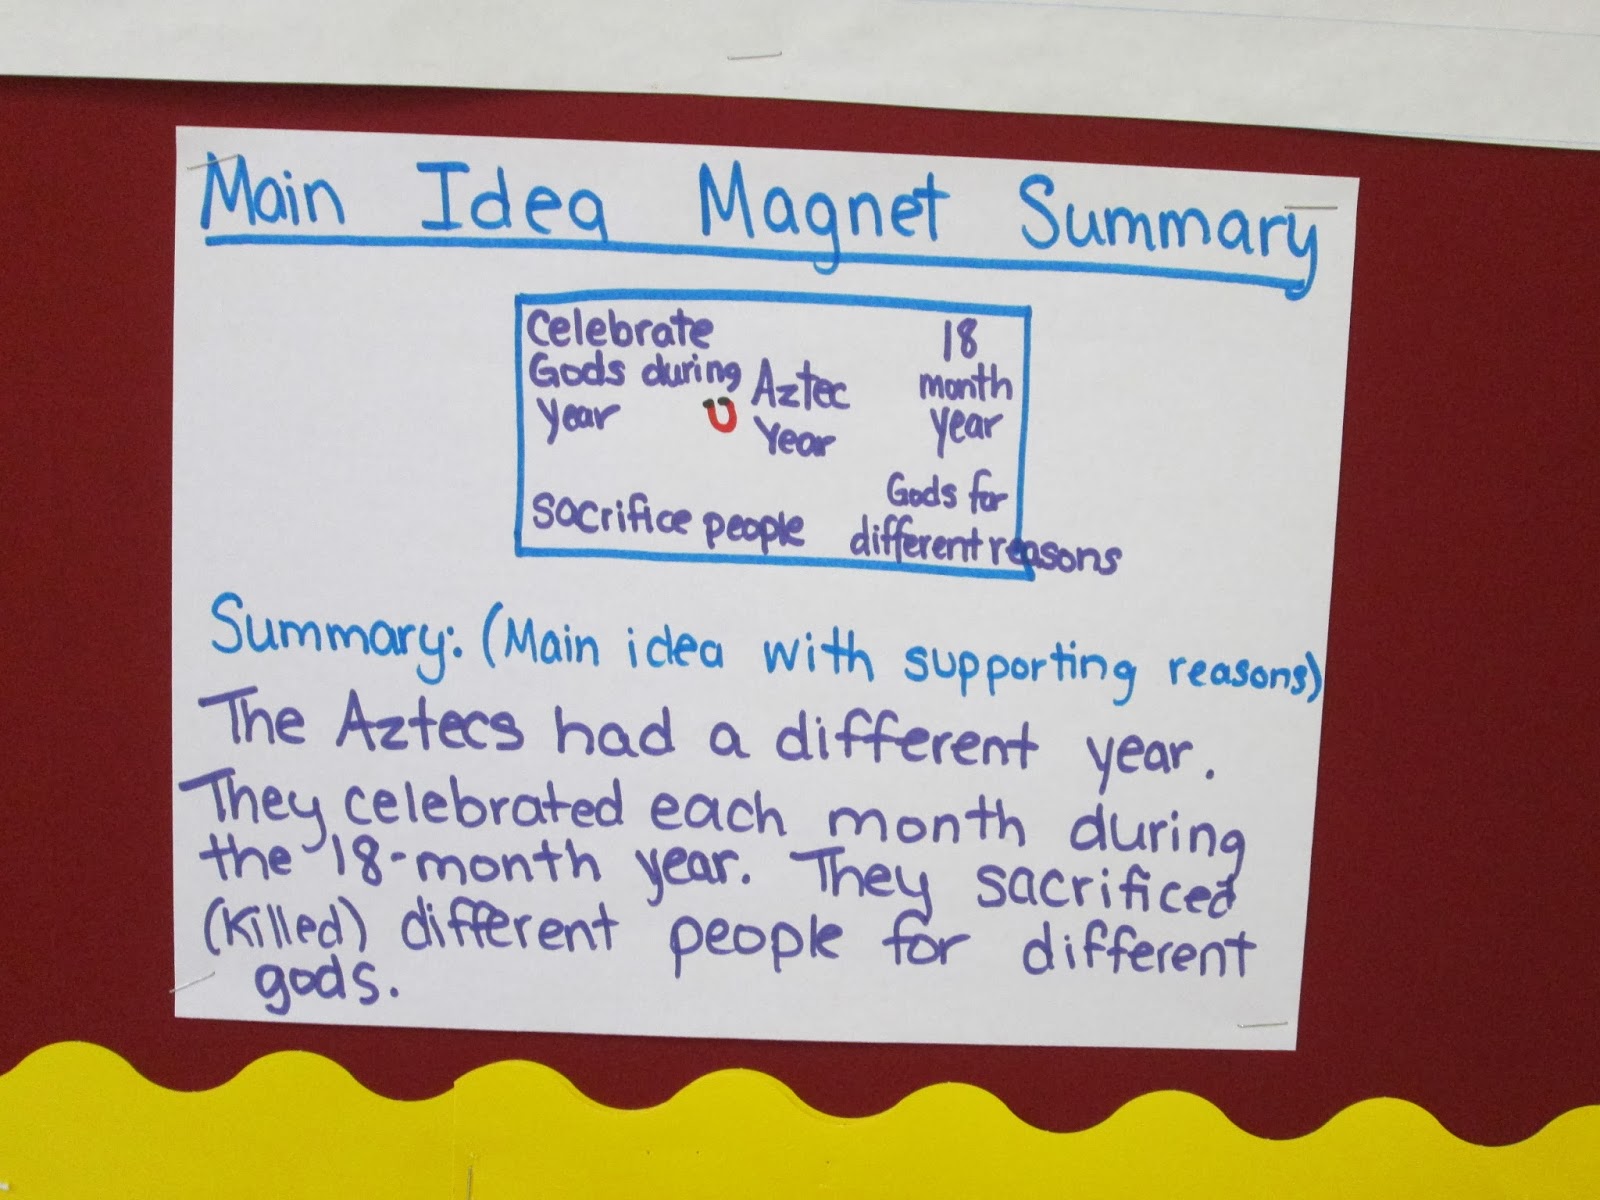 Main Idea Magnet Summary
Celebrate
Gods during
year
Aztec
Year
18
month
year
Sacrifice people
Gods for
different reasons
Summary: (Main idea with supporting reasons)
The Aztecs had a different year.
They celebrated each month during
the 18-month year. They sacrificed
(killed) different people for different
gods.